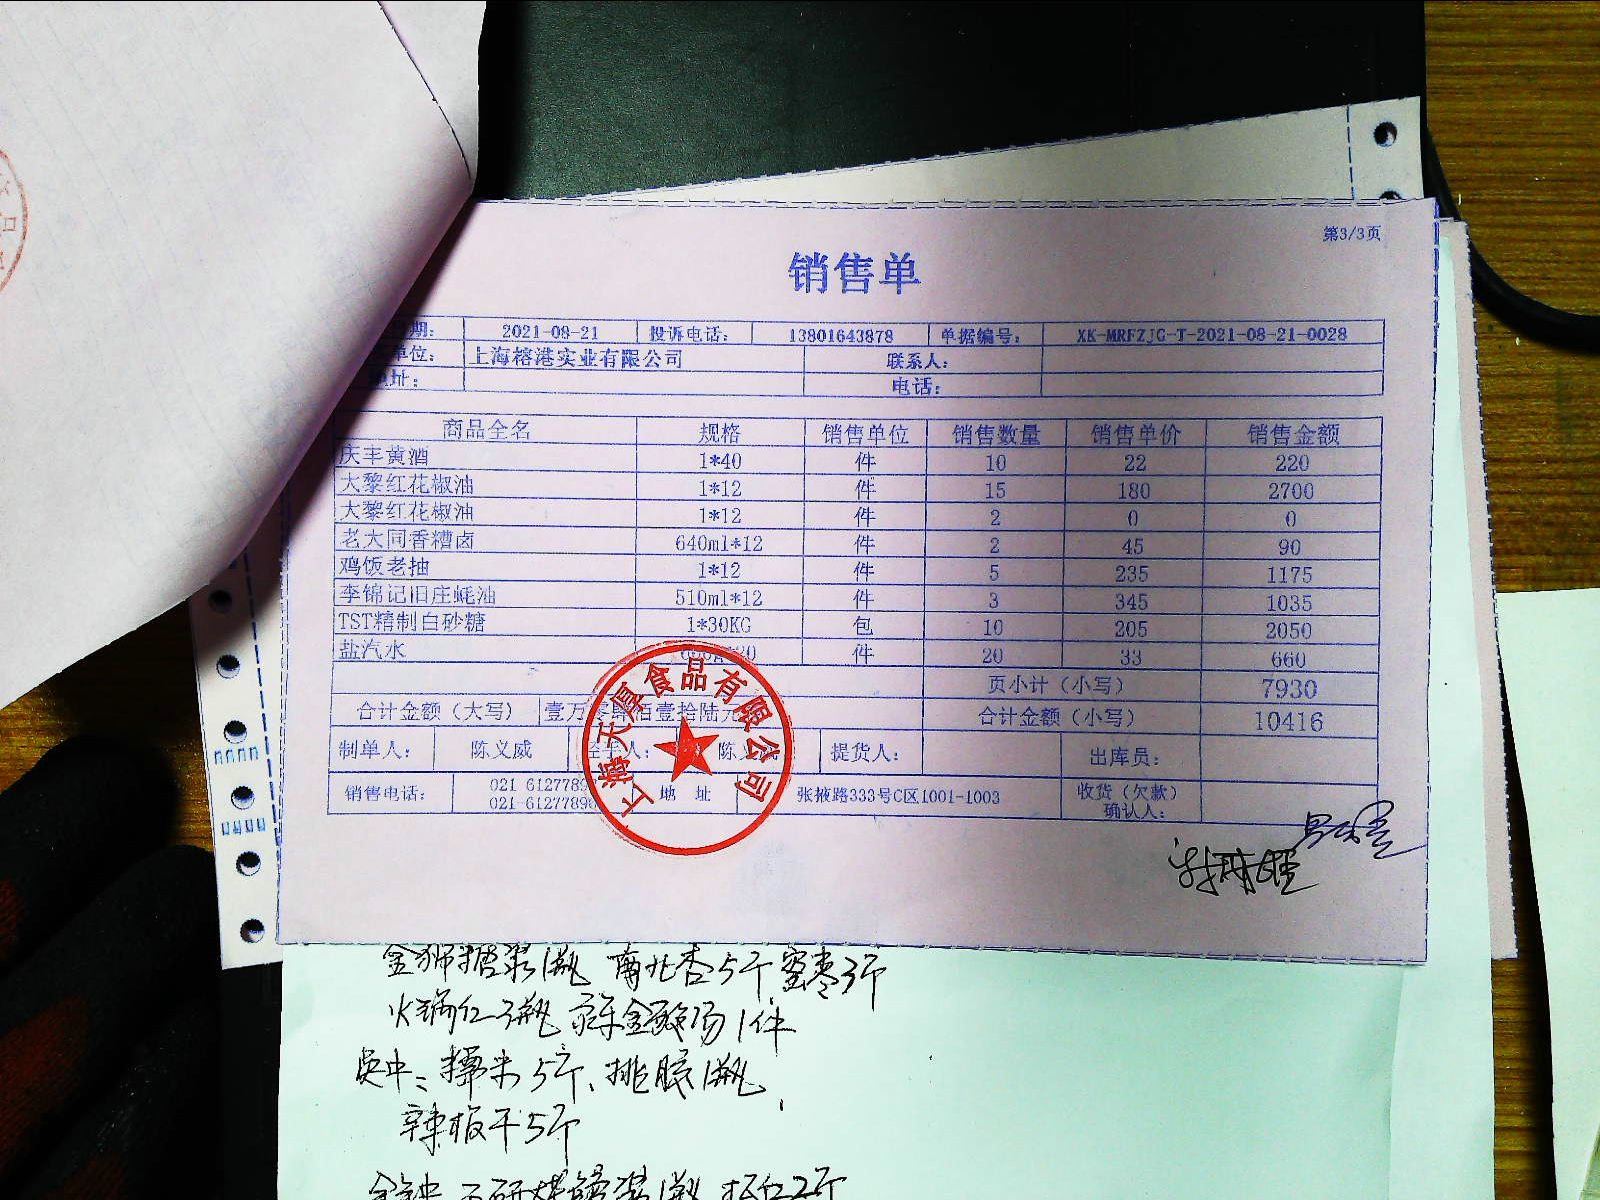 第3/3页
销售单
期： 2021-08-21 投诉电话： 13801643878 单据编号： XK-MRFZJG-T-2021-08-21-0028
单位： 上海榕港实业有限公司 联系人：
地址： 电话：
商品全名 规格 销售单位 销售数量 销售单价 销售金额
庆丰黄酒 1*40 件 10 22 220
大黎红花椒油 1*12 件 15 180 2700
大黎红花椒油 1*12 件 2 0 0
老大同香糟卤 640ml*12 件 2 45 90
鸡饭老抽 1*12 件 5 235 1175
李锦记旧庄蚝油 510ml*12 件 3 345 1035
TST精制白砂糖 1*30KG 包 10 205 2050
盐汽水 件 20 33 660
页小计（小写） 7930
合计金额（大写） 壹万零肆佰壹拾陆元 合计金额（小写） 10416
制单人： 陈义威 经手人： 陈义威 提货人： 出库员：
销售电话： 021-6127789 地 址 张掖路333号C区1001-1003 收货（欠款）
021-61277896 确认人：
上海天厚食品有限公司
金狮糖浆1瓶 南北杏5个 蜜枣3个
火锅红3瓶 1件
糯米5个、1瓶
辣椒干5个